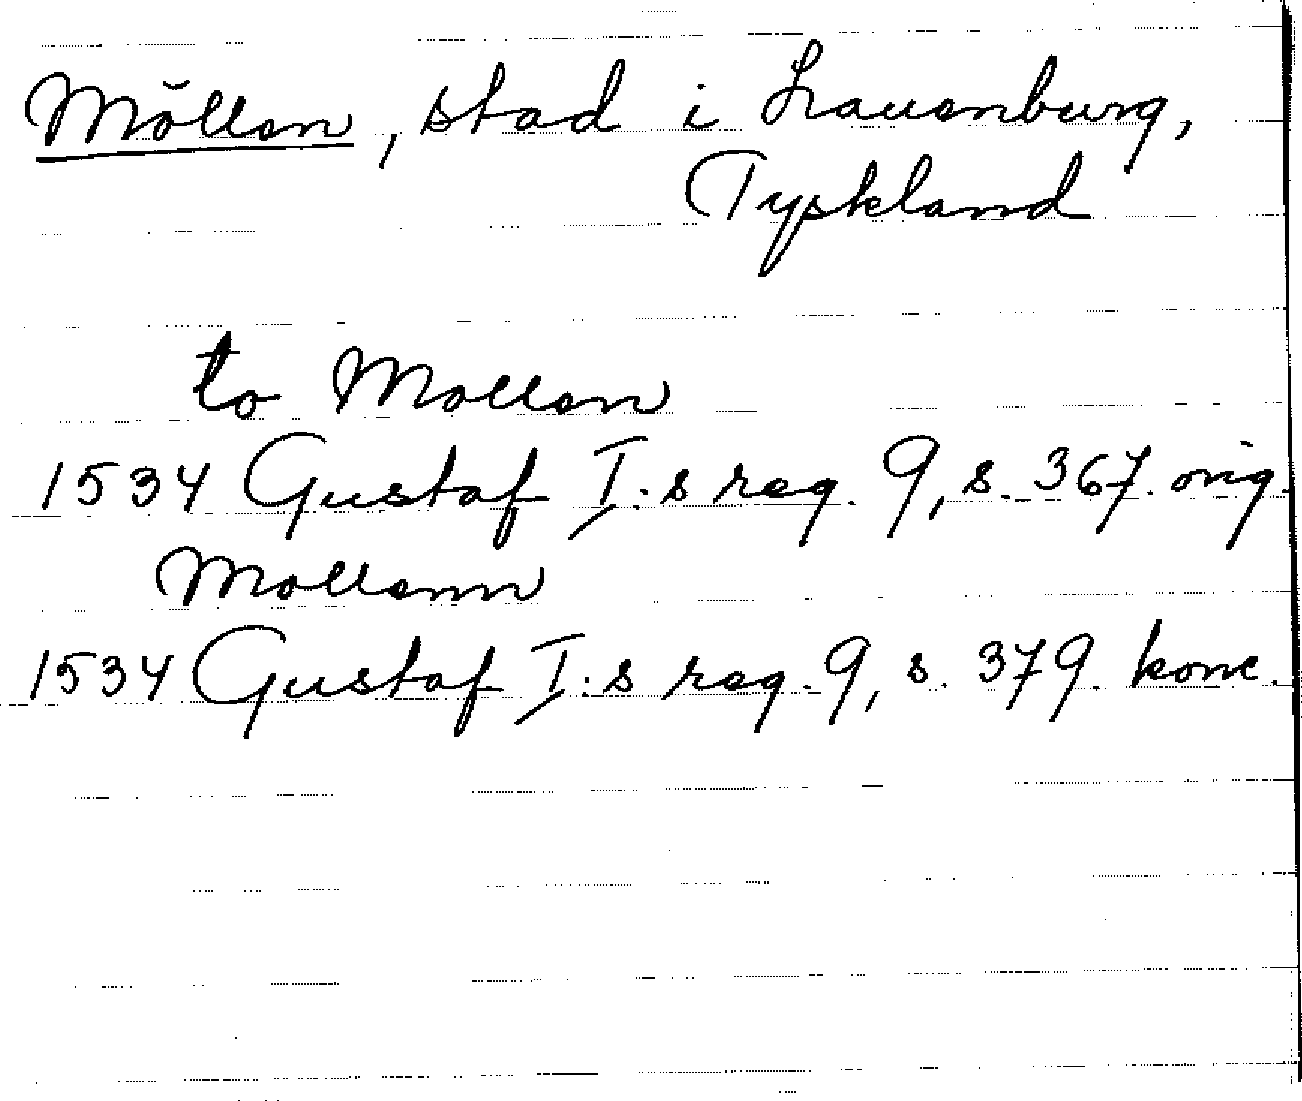 Möllen, stad i Lauenburg,
Tyskland
to Mollen
1534 Gustaf I:s reg. 9, s. 367. orig.
Mollenn
1534 Gustaf I:s reg. 9, s. 379. konc.